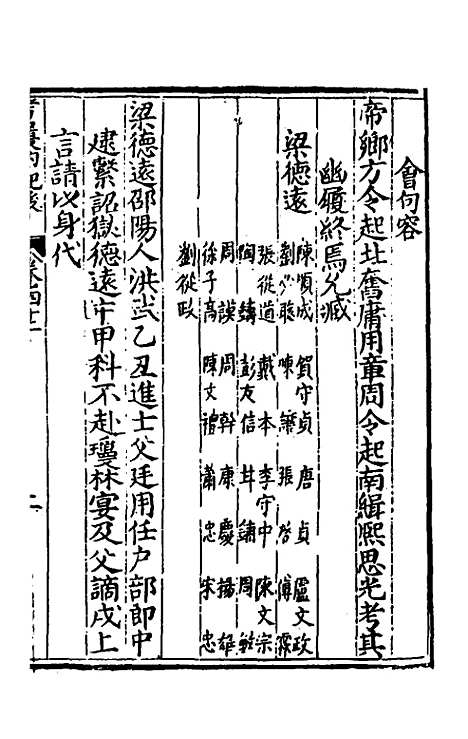 會句容
帝鄉方令起北奮庸用章周令起南緝熙思光考其
幽履終焉允臧
梁德遠 陳順成 賀守貞 唐貞 盧文政
陳謙 張啓 傅霖
張從道 戴本 李守中 陳文宗
陶鑄 彭友信 甘鏞 周雄
周謨 周幹 康慶 楊雄
徐子高 陳文裕 蕭忠 宋忠
劉從政
梁德遠邵陽人洪武乙丑進士父廷用任戶部郎中
逮繫詔獄德遠中甲科不赴瓊林宴及父謫戍上
言請以身代
卷四十一
二